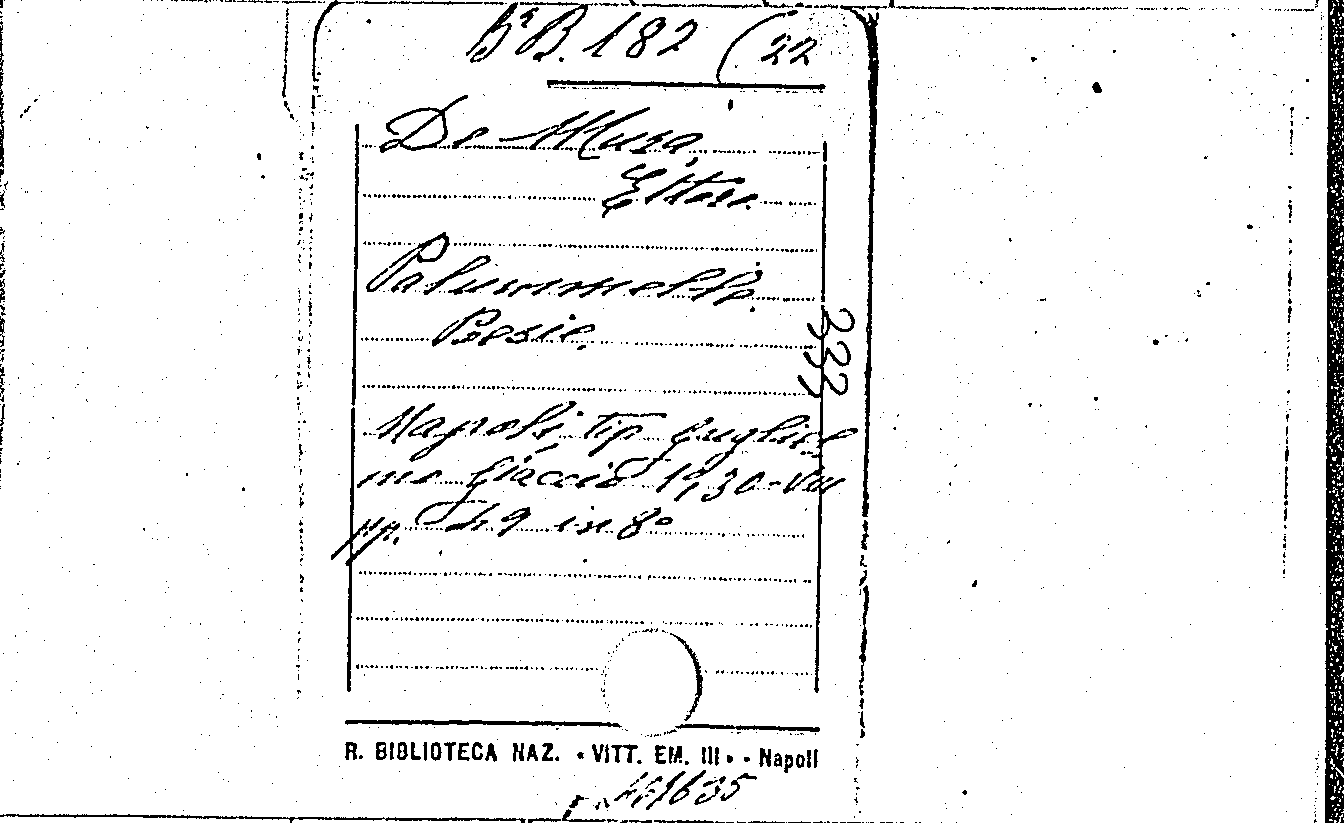 B.B. 182 (22
De Mura,
Ettore.
Palummelle.
Poesie.
333
Napoli, tip. Gugliel
mo Giaccio 19,30-VIII
pp. 49 in 8°
R. BIBLIOTECA NAZ. « VITT. EM. III » - Napoli